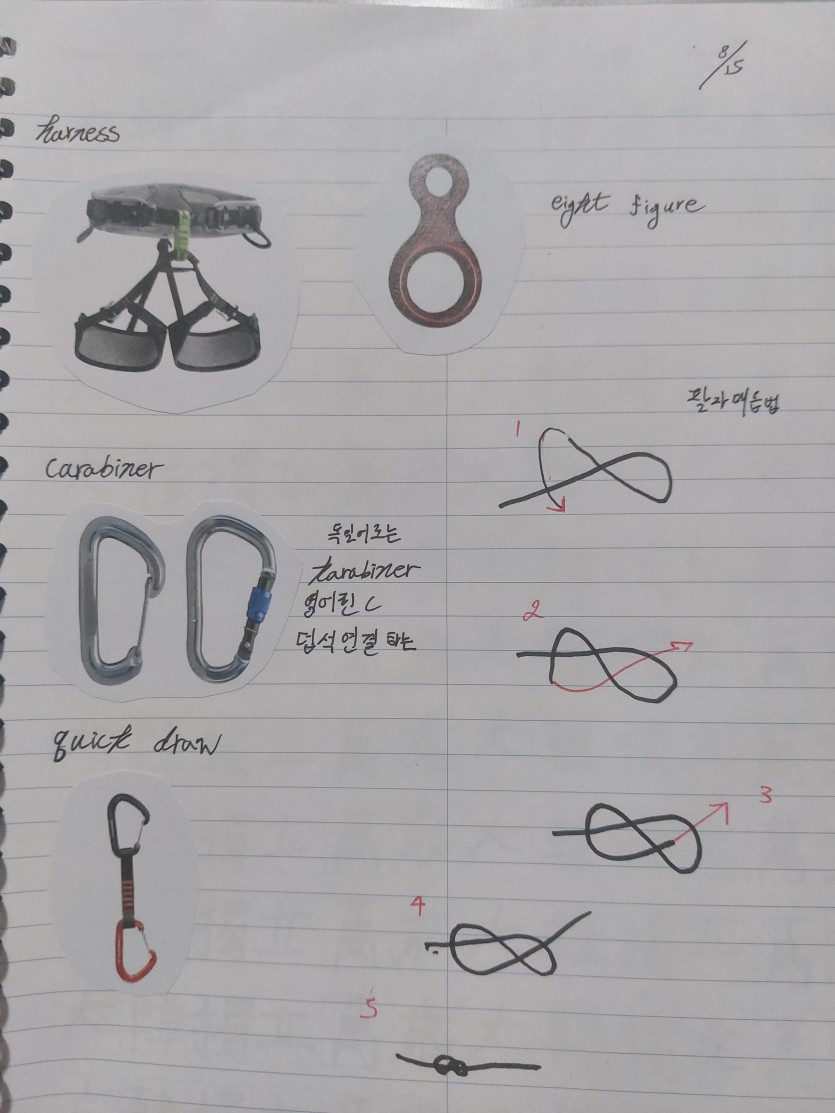 8/15
harness
eight figure
팔자매듭법
1
carabiner
독일어로는
karabiner
영어론 C
덥석 연결하는
2
quick draw
3
4
5